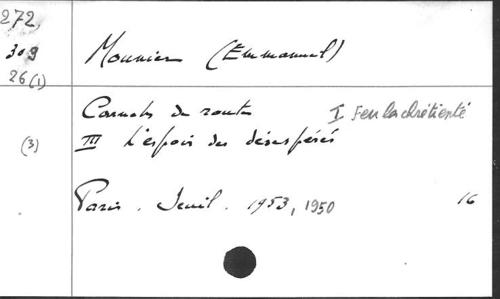 272,
309
26(1)
Mounier (Emmanuel)
Carnets de route I Feu la chrétienté
(3) III L'espoir des désespérés
Paris. Seuil. 1953, 1950 16